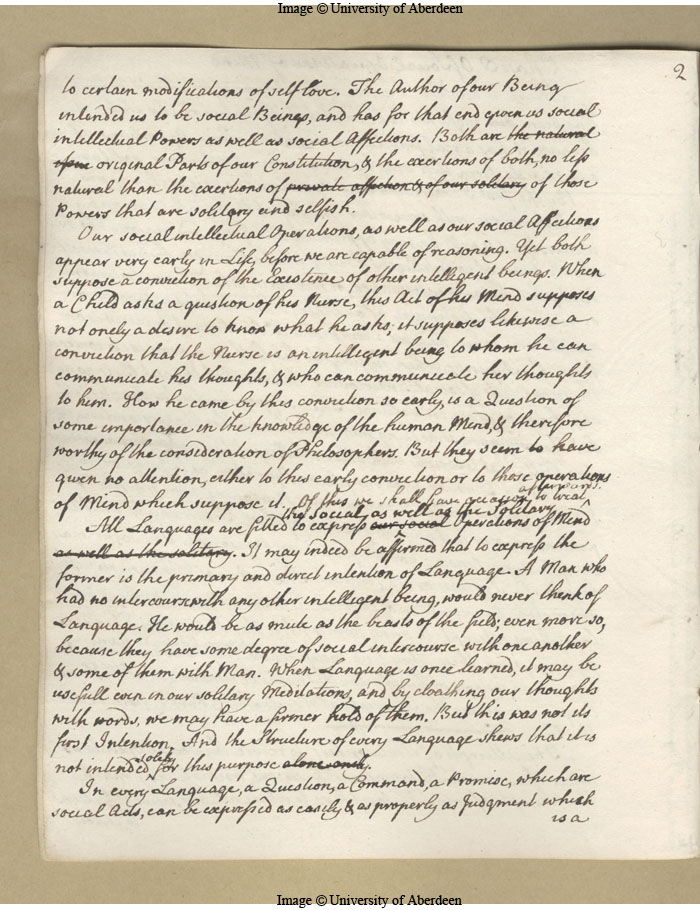 Image © University of Aberdeen
2
to certain modifications of self love. The Author of our Being
intended us to be social Beings, and has for that end given us social
intellectual Powers as well as social Affections. Both are the natural
original Parts of our Constitution, & the exertions of both, no less
natural than the exertions of private affection & of our solitary of those
Powers that are solitary and selfish.
Our social intellectual Operations, as well as our social Affections
appear very early in Life, before we are capable of reasoning. Yet both
suppose a conviction of the Existence of other intelligent beings. When
a Child asks a question of his Nurse, this Act of his Mind supposes
not onely a desire to know what he asks; it supposes likewise a
conviction that the Nurse is an intelligent being to whom he can
communicate his thoughts, & who can communicate her thoughts
to him. How he came by this conviction so early, is a Question of
some importance in the knowledge of the human Mind, & therefore
worthy of the consideration of Philosophers. But they seem to have
given no attention, either to this early conviction or to those operations
of Mind which suppose it. Of this we shall have occasion to treat
afterwards.
the social, as well as the Solitary
All Languages are fitted to express our social Operations of Mind
as well as the solitary. It may indeed be affirmed that to express the
former is the primary and direct intention of Language. A Man who
had no intercourse with any other intelligent being, would never think of
Language. He would be as mute as the beasts of the field; even more so,
because they have some degree of social intercourse with one another
& some of them with Man. When Language is once learned, it may be
usefull even in our solitary Meditations, and by cloathing our thoughts
with words, we may have a firmer hold of them. But this was not its
first Intention. And the Structure of every Language shews that it is
solely
not intended for this purpose alone only.
In every Language, a Question, a Command, a Promise, which are
social Acts, can be expressed as easily & as properly as Judgment which
is a
Image © University of Aberdeen